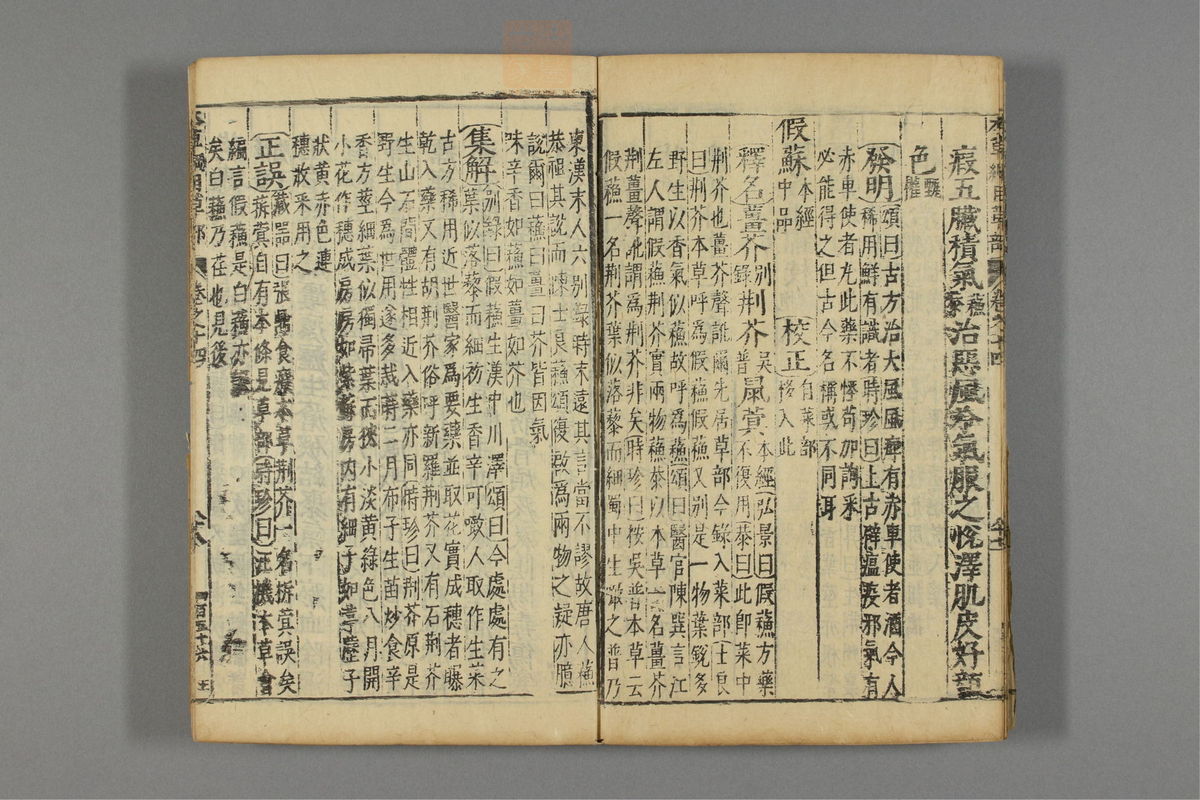 瘕五臟積氣蘇恭治惡風冷氣服之悅澤肌皮好顏
色甄權
發明頌曰古方治大風風痺有赤車使者酒今人
稀用鮮有識者時珍曰上古辟瘟疫邪氣有
赤車使者丸此藥不怪苟加詢采
必能得之但古今名稱或不同耳
假蘇本經中品 校正自菜部移入此
釋名薑芥別錄荆芥吳普鼠蓂本經弘景曰假蘇方藥
不復用恭曰此卽菜中
荆芥也薑芥聲訛爾先居草部今錄入菜部士良
曰荆芥本草呼爲假蘇假蘇又別是一物葉銳多
野生以香氣似蘇故呼爲蘇頌曰醫官陳巽言江
左人謂假蘇荆芥實兩物蘇恭以本草一名薑芥
荆薑聲訛謂爲荆芥非矣時珍曰按吳普本草云
假蘇一名荆芥葉似落藜而細蜀中生噉之普乃
東漢末人去別錄時未遠其言當不謬故唐人蘇
恭祖其說而陳士良蘇頌復啓爲兩物之疑亦臆
說爾曰蘇曰薑曰芥皆因氣
味辛香如蘇如薑如芥也
集解別錄曰假蘇生漢中川澤頌曰今處處有之
葉似落藜而細初生香辛可噉人取作生菜
古方稀用近世醫家爲要藥並取花實成穗者曝
乾入藥又有胡荆芥俗呼新羅荆芥又有石荆芥
生山石間體性相近入藥亦同時珍曰荆芥原是
野生今爲世用遂多栽蒔二月布子生苗炒食辛
香方莖細葉似獨帚葉而狹小淡黃綠色八月開
小花作穗成房房如紫蘇房內有細子如葶藶子
狀黃赤色連
穗收采用之
正誤藏器曰張鼎食療本草荆芥一名析蓂誤矣
菥蓂自有本條見草部時珍曰汪機本草會
編言假蘇是白蘇亦誤
矣白蘇乃荏也見後
本草綱目草部 卷之十四